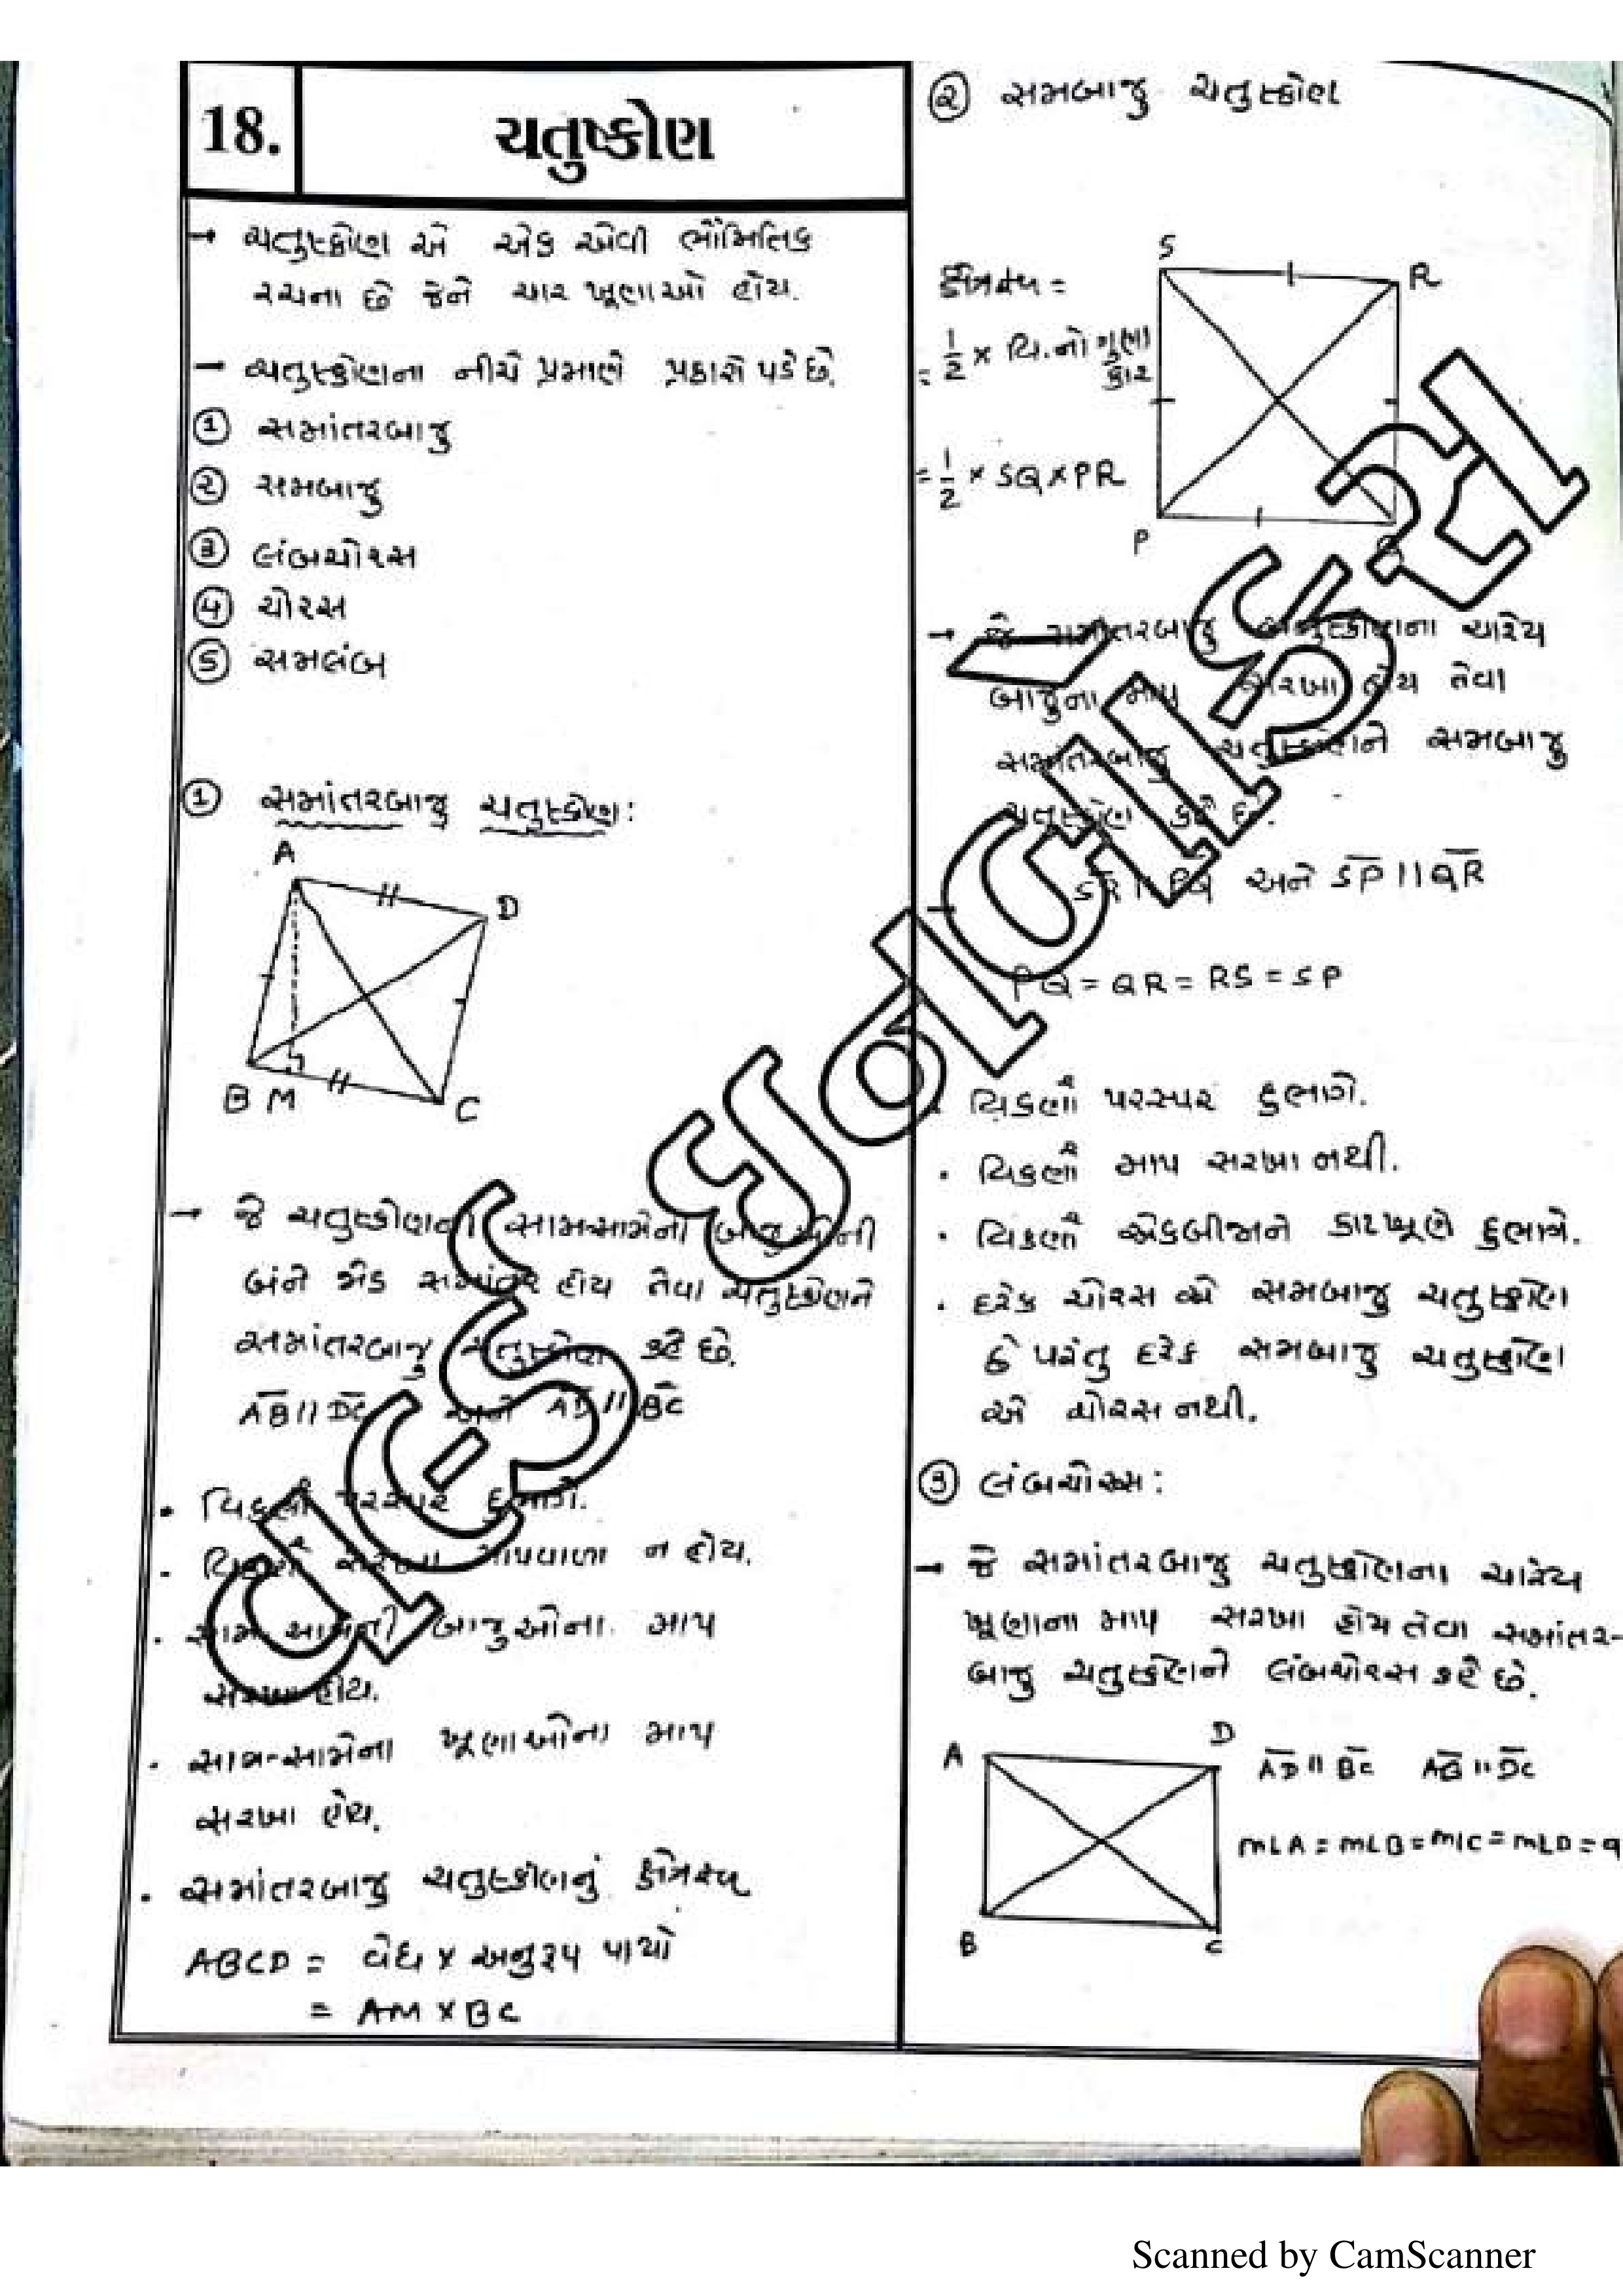 18.
ચતુષ્કોણ
→ ચતુષ્કોણ એ એક એવી ભૌમિતિક
રચના છે જેને ચાર ખૂણાઓ હોય.
→ ચતુષ્કોણના નીચે પ્રમાણે પ્રકારો પડે છે.
① સમાંતરબાજુ
② સમબાજુ
③ લંબચોરસ
④ ચોરસ
⑤ સમલંબ
① સમાંતરબાજુ ચતુષ્કોણ:
A
D
B M C
→ જે ચતુષ્કોણની સામસામેની બાજુઓની
બંને જોડ સમાંતર હોય તેવા ચતુષ્કોણને
સમાંતરબાજુ ચતુષ્કોણ કહે છે.
A̅B̅ // D̅C̅ અને A̅D̅ // B̅C̅
• વિકર્ણો પરસ્પર દુભાગે.
• વિકર્ણો સરખા માપવાળા ન હોય.
• સામ સામેની બાજુઓના માપ
સરખા હોય.
• સામ-સામેના ખૂણાઓના માપ
સરખા હોય.
• સમાંતરબાજુ ચતુષ્કોણનું ક્ષેત્રફળ
ABCD = વેધ × અનુરૂપ પાયો
= AM × BC
② સમબાજુ ચતુષ્કોણ
S
R
ક્ષેત્રફળ =
= 1/2 × વિ.નો ગુણાકાર
= 1/2 × SQ × PR
P
Q
→ જે સમાંતરબાજુ ચતુષ્કોણના ચારેય
બાજુના માપ સરખા હોય તેવા
સમાંતરબાજુ ચતુષ્કોણને સમબાજુ
ચતુષ્કોણ કહે છે.
→ S̅R̅ || P̅Q̅ અને S̅P̅ || Q̅R̅
PQ = QR = RS = SP
• વિકર્ણો પરસ્પર દુભાગે.
• વિકર્ણો માપ સરખા નથી.
• વિકર્ણો એકબીજાને કાટખૂણે દુભાગે.
• દરેક ચોરસ એ સમબાજુ ચતુષ્કોણ
છે પરંતુ દરેક સમબાજુ ચતુષ્કોણ
એ ચોરસ નથી.
③ લંબચોરસ:
→ જે સમાંતરબાજુ ચતુષ્કોણના ચારેય
ખૂણાના માપ સરખા હોય તેવા સમાંતર-
બાજુ ચતુષ્કોણને લંબચોરસ કહે છે.
A D
A̅D̅ || B̅C̅ A̅B̅ || D̅C̅
m∠A = m∠B = m∠C = m∠D = 9
B C
Scanned by CamScanner